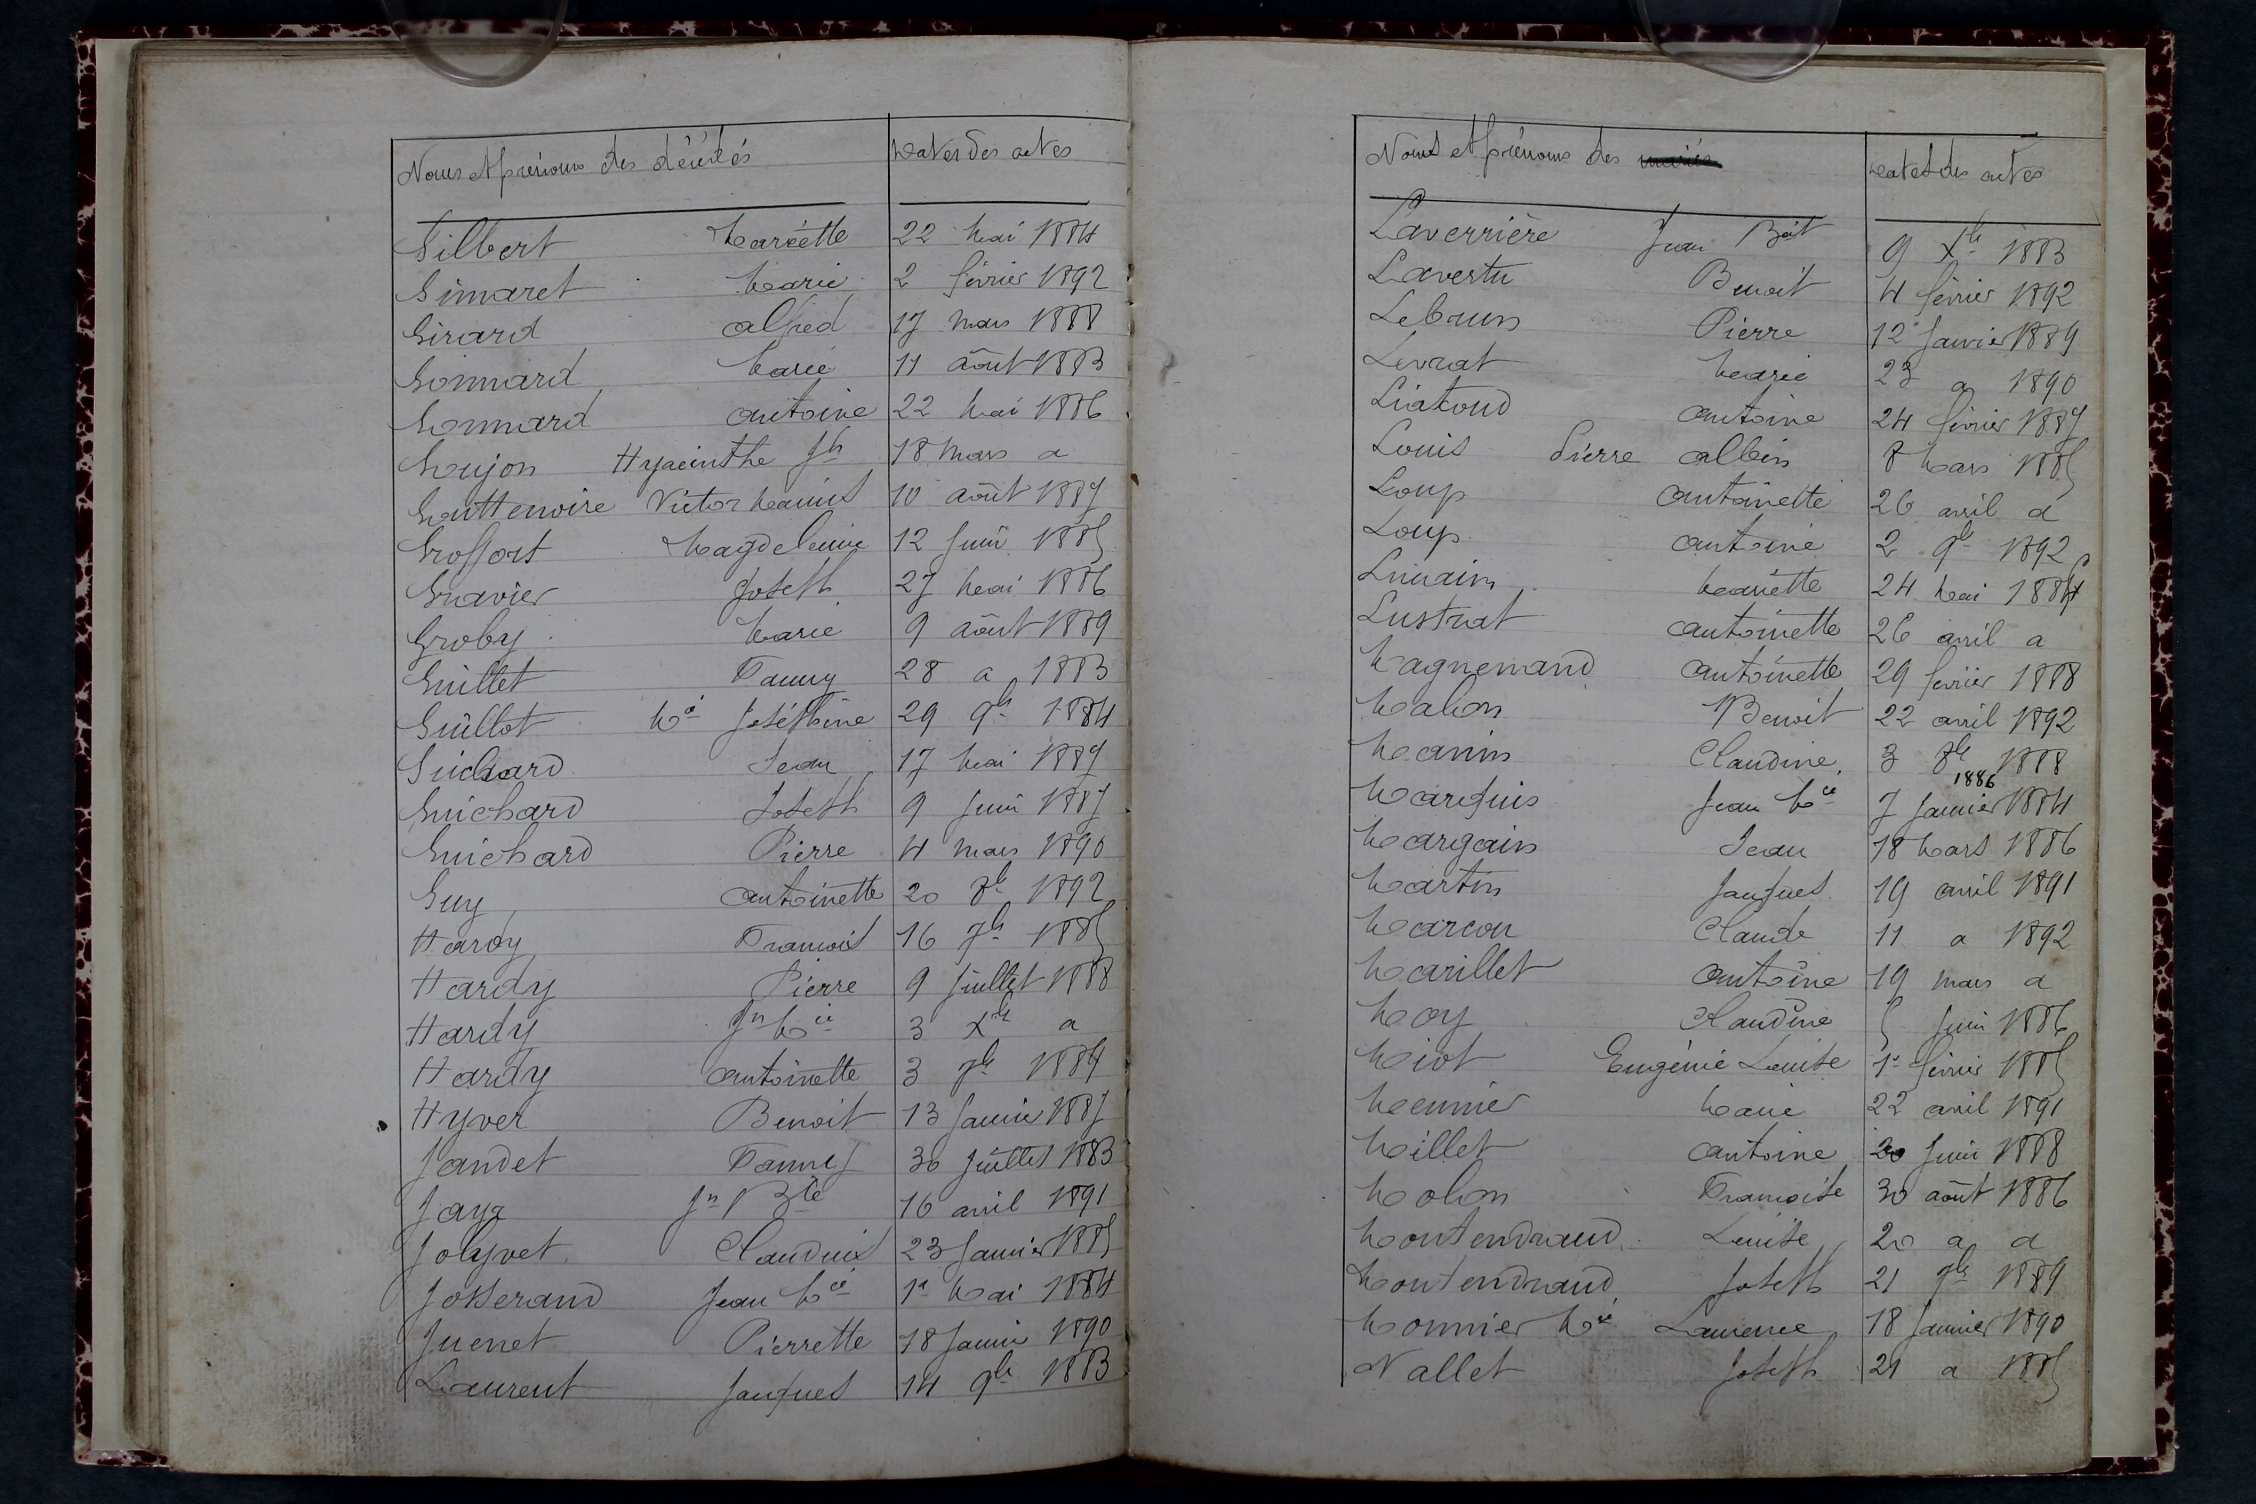 Noms et prénoms des décédés Dates des actes
Gilbert Mariette 22 Mai 1884
Gimaret Marie 2 février 1892
Girard alfred 17 mars 1888
Gonnard Marie 11 août 1883
Gonnard antoine 22 Mai 1886
Goujon Hyacinthe Jh 18 Mars a
Gouttenoire Victor Marius 10 août 1887
Magdeleine 12 Juin 1885
Gravier Joseph 27 Mai 1886
Groby Marie 9 août 1889
Guillet Fanny 28 a 1883
Guillot Mie Joséphine 29 9bre 1884
Guichard Jean 17 Mai 1887
Guichard Joseph 9 Juin 1887
Guichard Pierre 4 mars 1890
Guy antoinette 20 8bre 1892
Hardy François 16 7bre 1885
Hardy Pierre 9 Juillet 1888
Hardy Jn Mie 3 Xbre a
Hardy antoinette 3 7bre 1889
Hyver Benoit 13 Janvier 1887
Jandet Fanny 30 Juillet 1883
Jayr Jn Bte 16 avril 1891
Jolyvet Claudius 23 Janvier 1885
Josserand Jean Mie 1er Mai 1884
Juenet Pierrette 18 Janvier 1890
Laurent Jacques 14 9bre 1883
Noms et prénoms des mariés Dates des actes
Laverrière Jean Bоit 9 Xbre 1883
Lavestu Benoit 4 février 1892
Lebrun Pierre 12 Janvier 1889
Levrat Marie 23 a 1890
Liatoud antoine 24 février 1887
Louis Pierre albin 8 Mars 1885
Loup antoinette 26 avril a
Loup antoine 2 9bre 1892
Mariette 24 Mai 1884
Lustrat antoinette 26 avril a
Magnenand antoinette 29 février 1888
Malion Benoit 22 avril 1892
Manin Claudine 3 8bre 1888
1886
Marquis Jean Mie 7 Janvier 1884
Margain Jean 18 Mars 1886
Martin Jacques 19 avril 1891
Marcou Claude 11 a 1892
Marillet antoine 19 mars a
Moy Claudine 5 Juin 1886
Miot Eugénie Louise 1er février 1885
Meunier Marie 22 avril 1891
Millet antoine 20 Juin 1888
Molion Françoise 30 août 1886
Montendraud Louise 20 a a
Montendraud Joseph 21 9bre 1889
Monnier Mie Laurence 18 Janvier 1890
Nallet Joseph 21 a 1885